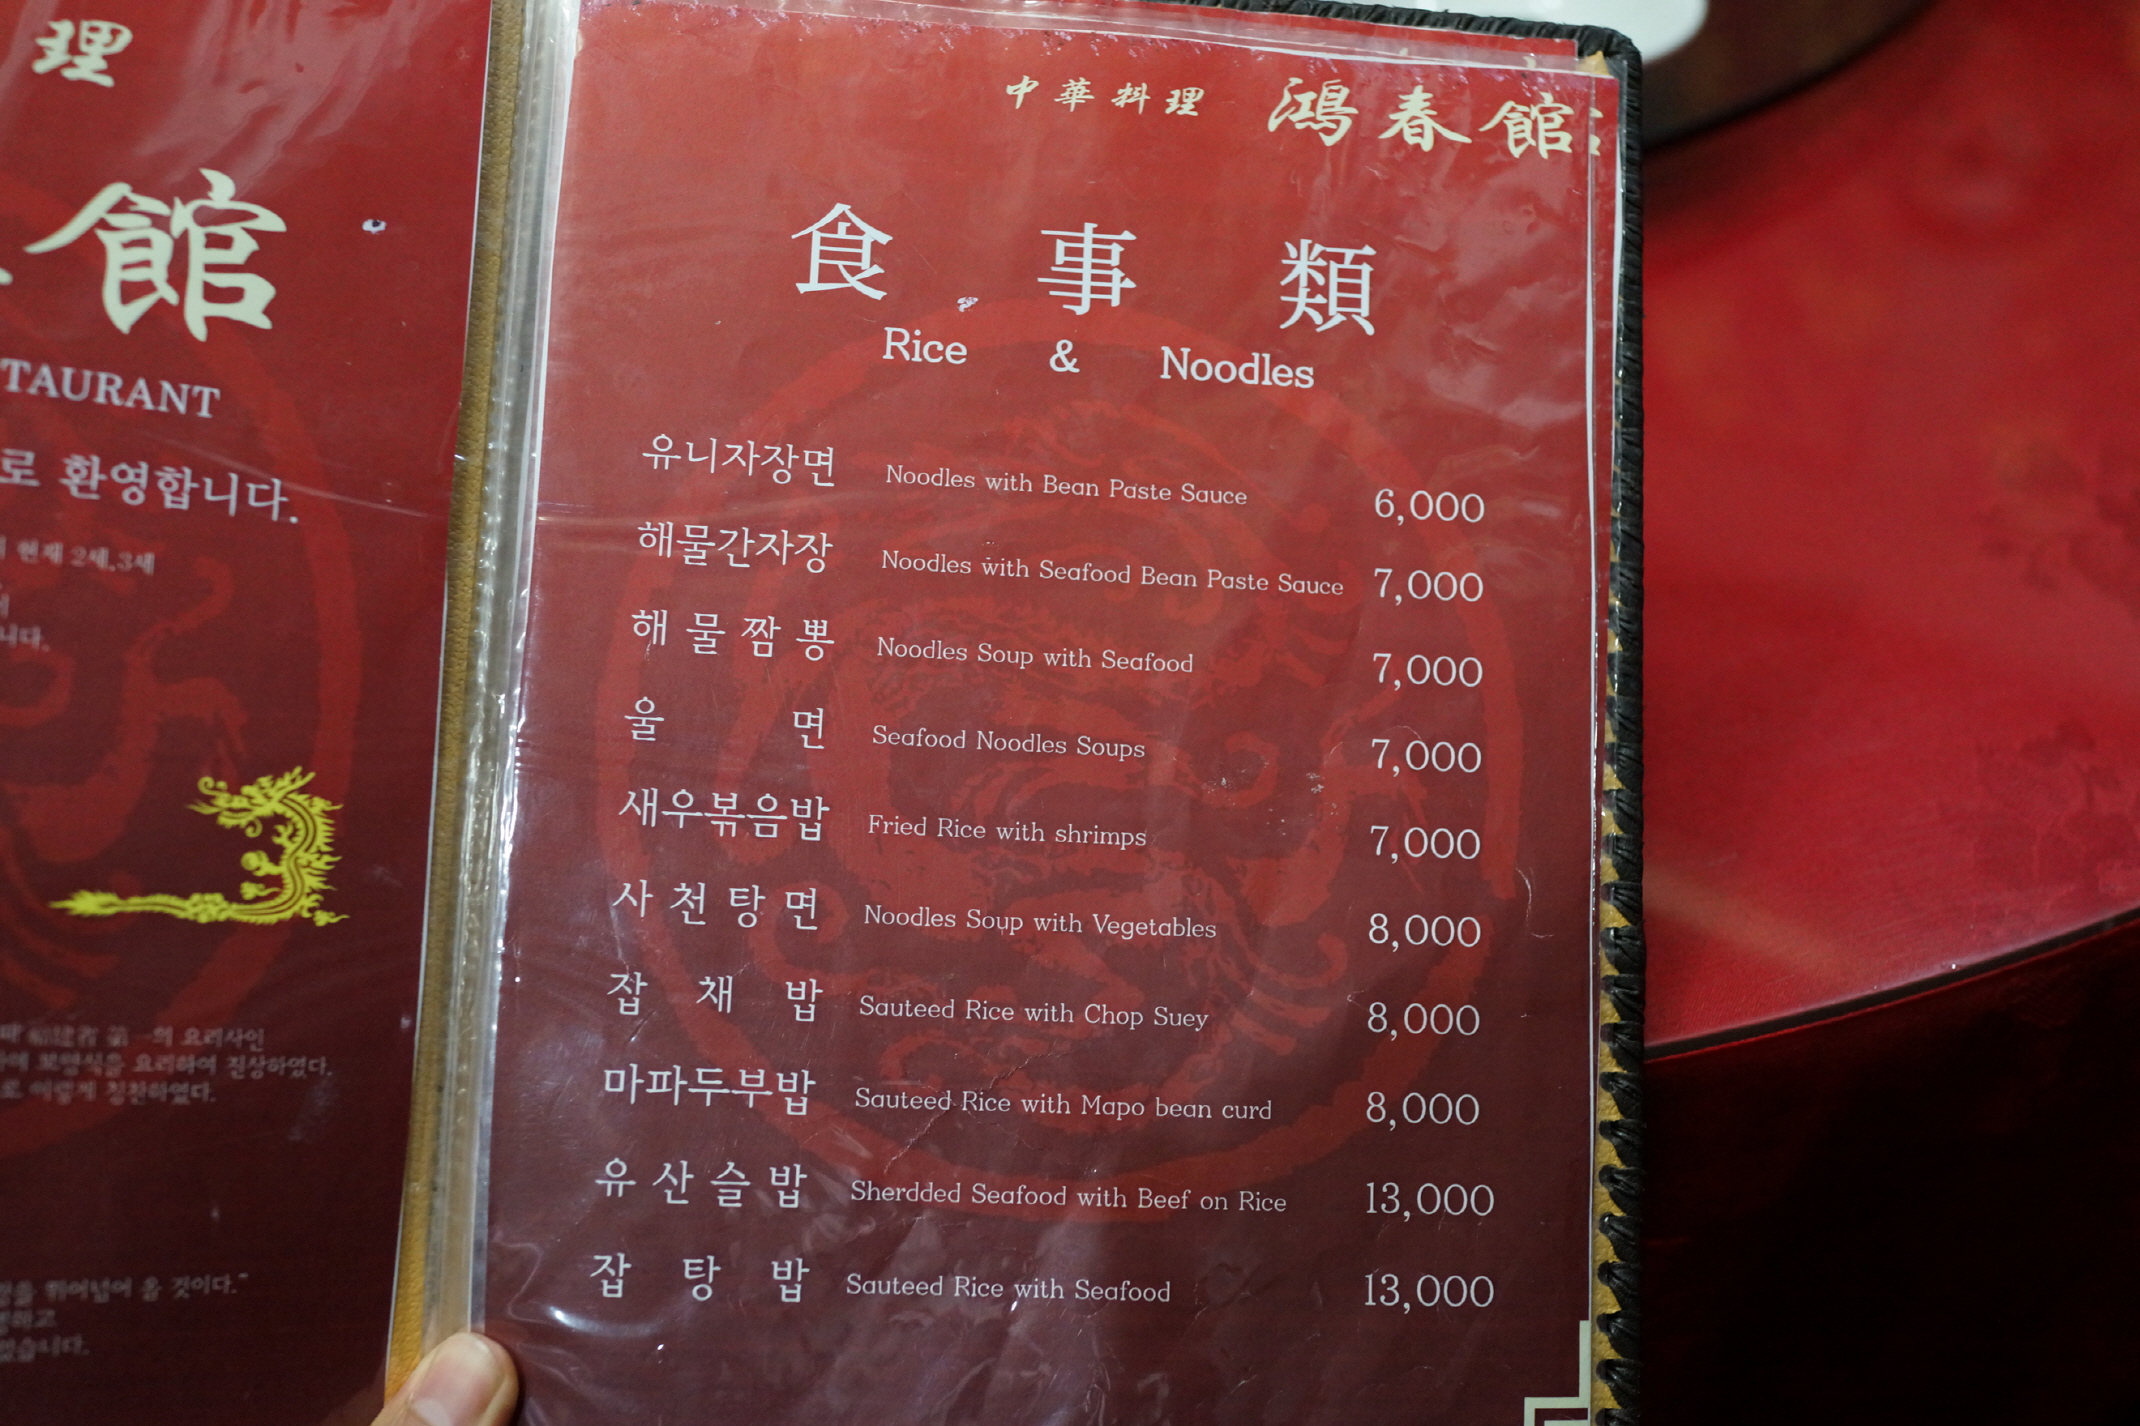 理
館
TAURANT
로 환영합니다.
현재 2세,3세
니다.
第一의 요리사인
요리하여 진상하였다.
로 이렇게 칭찬하였다.
뛰어넘어 올 것이다."
였습니다.
中華料理 鴻春館
食事類
Rice & Noodles
유니자장면 Noodles with Bean Paste Sauce 6,000
해물간자장 Noodles with Seafood Bean Paste Sauce 7,000
해물짬뽕 Noodles Soup with Seafood 7,000
울면 Seafood Noodles Soups 7,000
새우볶음밥 Fried Rice with shrimps 7,000
사천탕면 Noodles Soup with Vegetables 8,000
잡채밥 Sauteed Rice with Chop Suey 8,000
마파두부밥 Sauteed Rice with Mapo bean curd 8,000
유산슬밥 Sherdded Seafood with Beef on Rice 13,000
잡탕밥 Sauteed Rice with Seafood 13,000